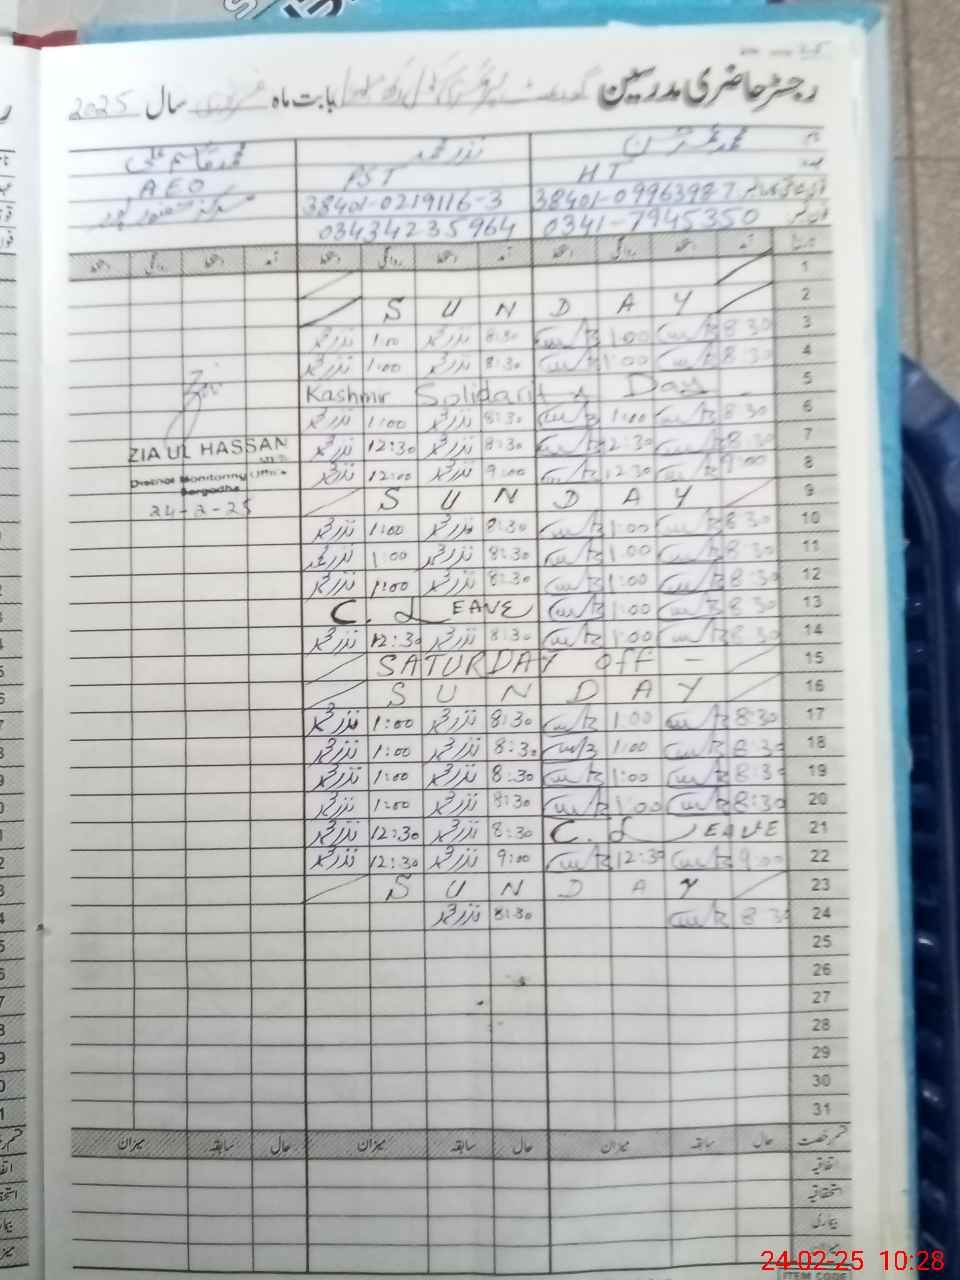 رجسٹر حاضری مدرسین گورنمنٹ پرائمری سکول بابت ماہ فروری سال 2025
نام محمد نذر محمد محمد قاسم علی
عہدہ HT PST AEO
38401-0996398-7 38401-0219116-3 مرکز
فون نمبر 0341-7945350 03434235964
تاریخ آمد دستخط روانگی دستخط آمد دستخط روانگی دستخط آمد دستخط روانگی دستخط
1
2 S U N D A Y
3 8:30 1:00 8:30 نذر محمد 1:00 نذر محمد
4 8:30 1:00 8:30 نذر محمد 1:00 نذر محمد
5 Kashmir Solidarity Day
6 8:30 1:00 8:30 نذر محمد 1:00 نذر محمد
7 8:30 12:30 8:30 نذر محمد 12:30 نذر محمد
8 9:00 12:30 9:00 نذر محمد 12:00 نذر محمد
9 S U N D A Y
10 8:30 1:00 8:30 نذر محمد 1:00 نذر محمد
11 8:30 1:00 8:30 نذر محمد 1:00 نذر محمد
12 8:30 1:00 8:30 نذر محمد 1:00 نذر محمد
13 8:30 1:00 C. LEAVE
14 8:30 1:00 8:30 نذر محمد 12:30 نذر محمد
15 SATURDAY off -
16 S U N D A Y
17 8:30 1:00 8:30 نذر محمد 1:00 نذر محمد
18 8:30 1:00 8:30 نذر محمد 1:00 نذر محمد
19 8:30 1:00 8:30 نذر محمد 1:00 نذر محمد
20 8:30 1:00 8:30 نذر محمد 1:00 نذر محمد
21 C. LEAVE 8:30 نذر محمد 12:30 نذر محمد
22 9:00 12:30 9:00 نذر محمد 12:30 نذر محمد
23 S U N D A Y
24 8:30 8:30 نذر محمد
25
26
27
28
29
30
31
ZIA UL HASSAN
District Monitoring Office
Sargodha
24-2-25
قسم رخصت حال سابقہ میزان حال سابقہ میزان حال سابقہ میزان
اتفاقیہ
استحقاقیہ
بیماری
میزان
ITEM CODE
24-02-25 10:28